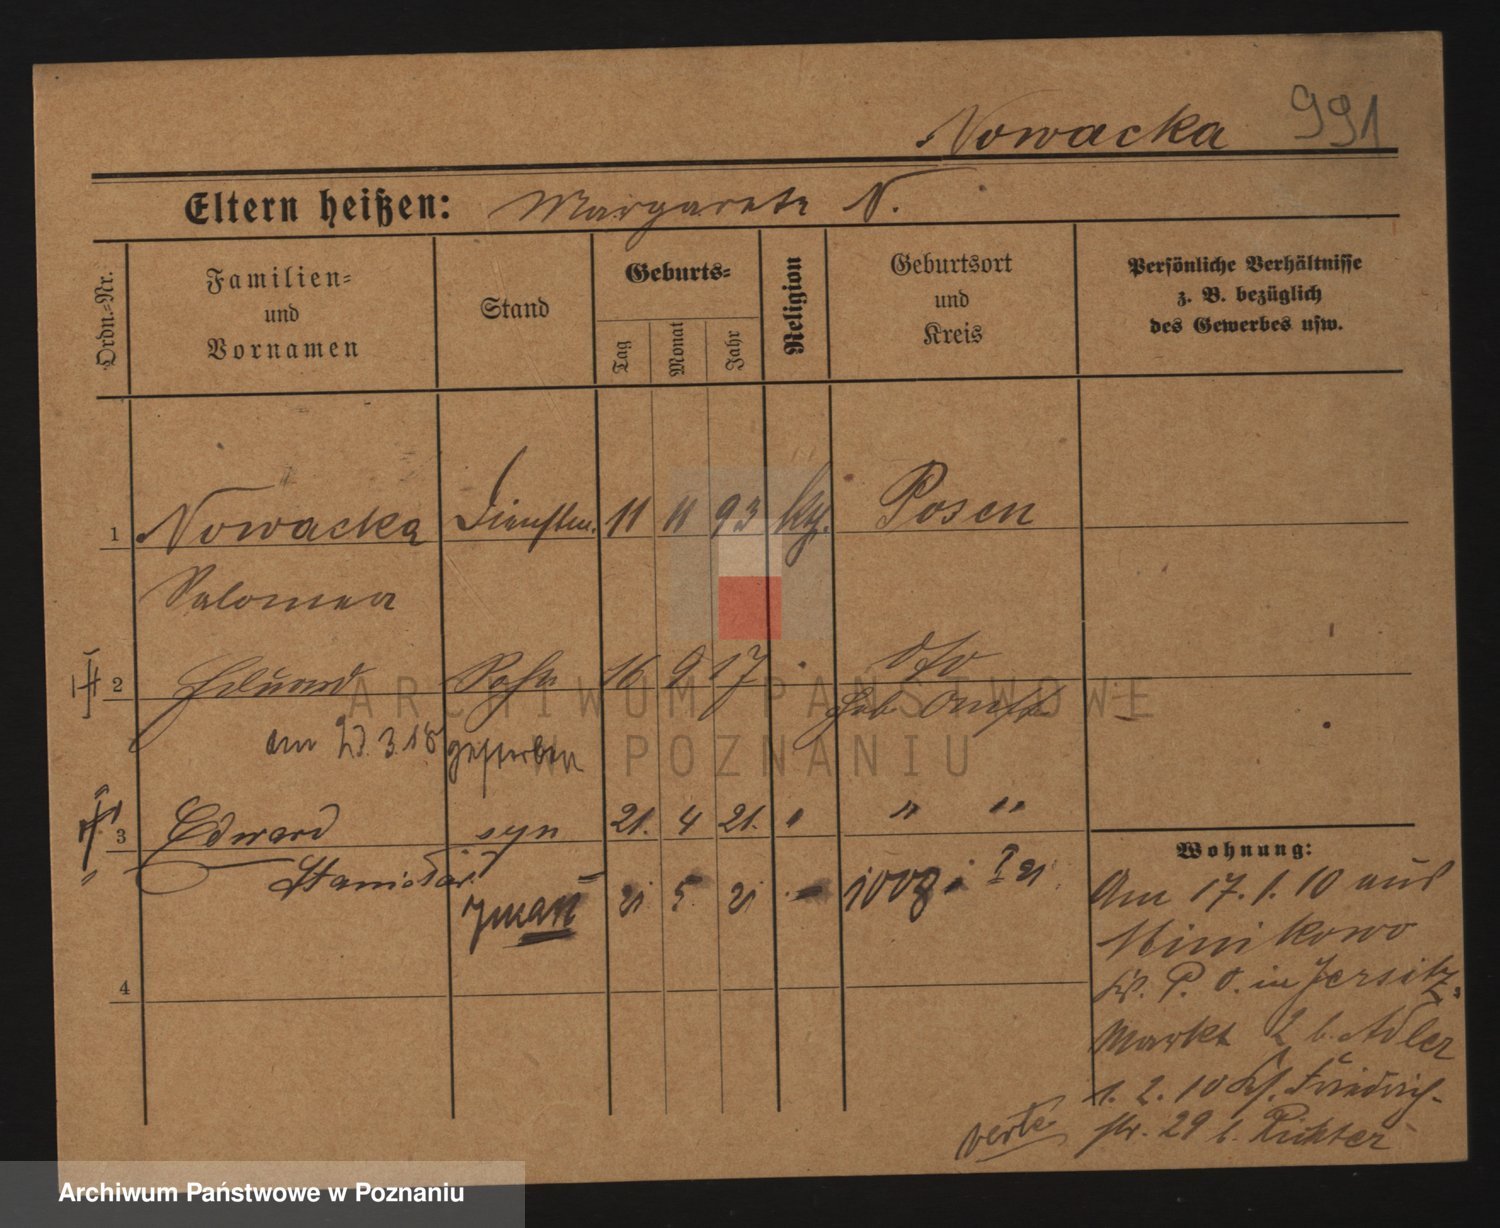 Nowacka 991
Eltern heißen: Margarete N.
Ordn.-Nr.
Familien=
und
Vornamen
Stand
Geburts=
Tag
Monat
Jahr
Religion
Geburtsort
und
Kreis
Persönliche Verhältnisse
z. B. bezüglich
des Gewerbes usw.
1 Nowacka Dienstm. 11 11 93 kth. Posen
Salomea
2 Eduard Sohn 16 9 17 dto
am 23.3.18 gestorben
3 Edward syn 21. 4 21. " " "
Stanisław
zmarł 21 5 21
4
Wohnung:
Am 17. 1. 10 aus
Minikowo
Kr. P. O. in Jersitz.
Markt 2 b. Adler
1. 2. 10 Kf. Friedrich-
str. 29 b. Richter
verte
ARCHIWUM PAŃSTWOWE
W POZNANIU
Archiwum Państwowe w Poznaniu